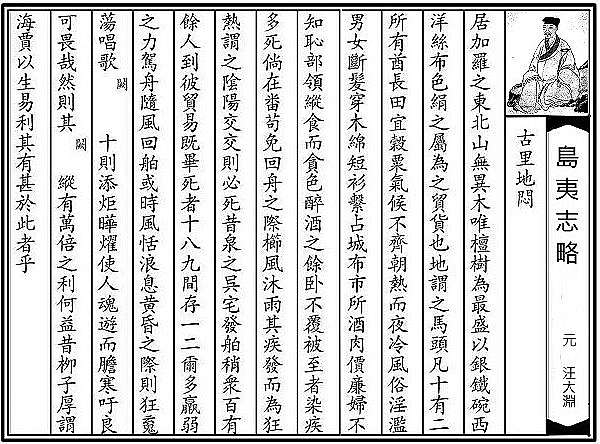 島夷志略
元 汪大淵
古里地悶
居加羅之東北山無異木唯檀樹為最盛以銀鐵碗西
洋絲布色絹之屬為之貿貨也地謂之馬頭凡十有二
所有酋長田宜穀粟氣候不齊朝熱而夜冷風俗淫濫
男女斷髮穿木綿短衫繫占城布市所酒肉價廉婦不
知恥部領縱食而貪色醉酒之餘卧不覆被至者染疾
多死倘在畨苟免回舟之際櫛風沐雨其疾發而為狂
熱謂之陰陽交交則必死昔泉之吳宅發舶稍衆百有
餘人到彼貿易既畢死者十八九間存一二爾多羸弱
之力駕舟隨風回舶或時風恬浪息黃昏之際則狂䰟
蕩唱歌 闕 十則添炬曄燿使人魂遊而膽寒吁良
可畏哉然則其 闕 縱有萬倍之利何益昔柳子厚謂
海賈以生易利其有甚於此者乎